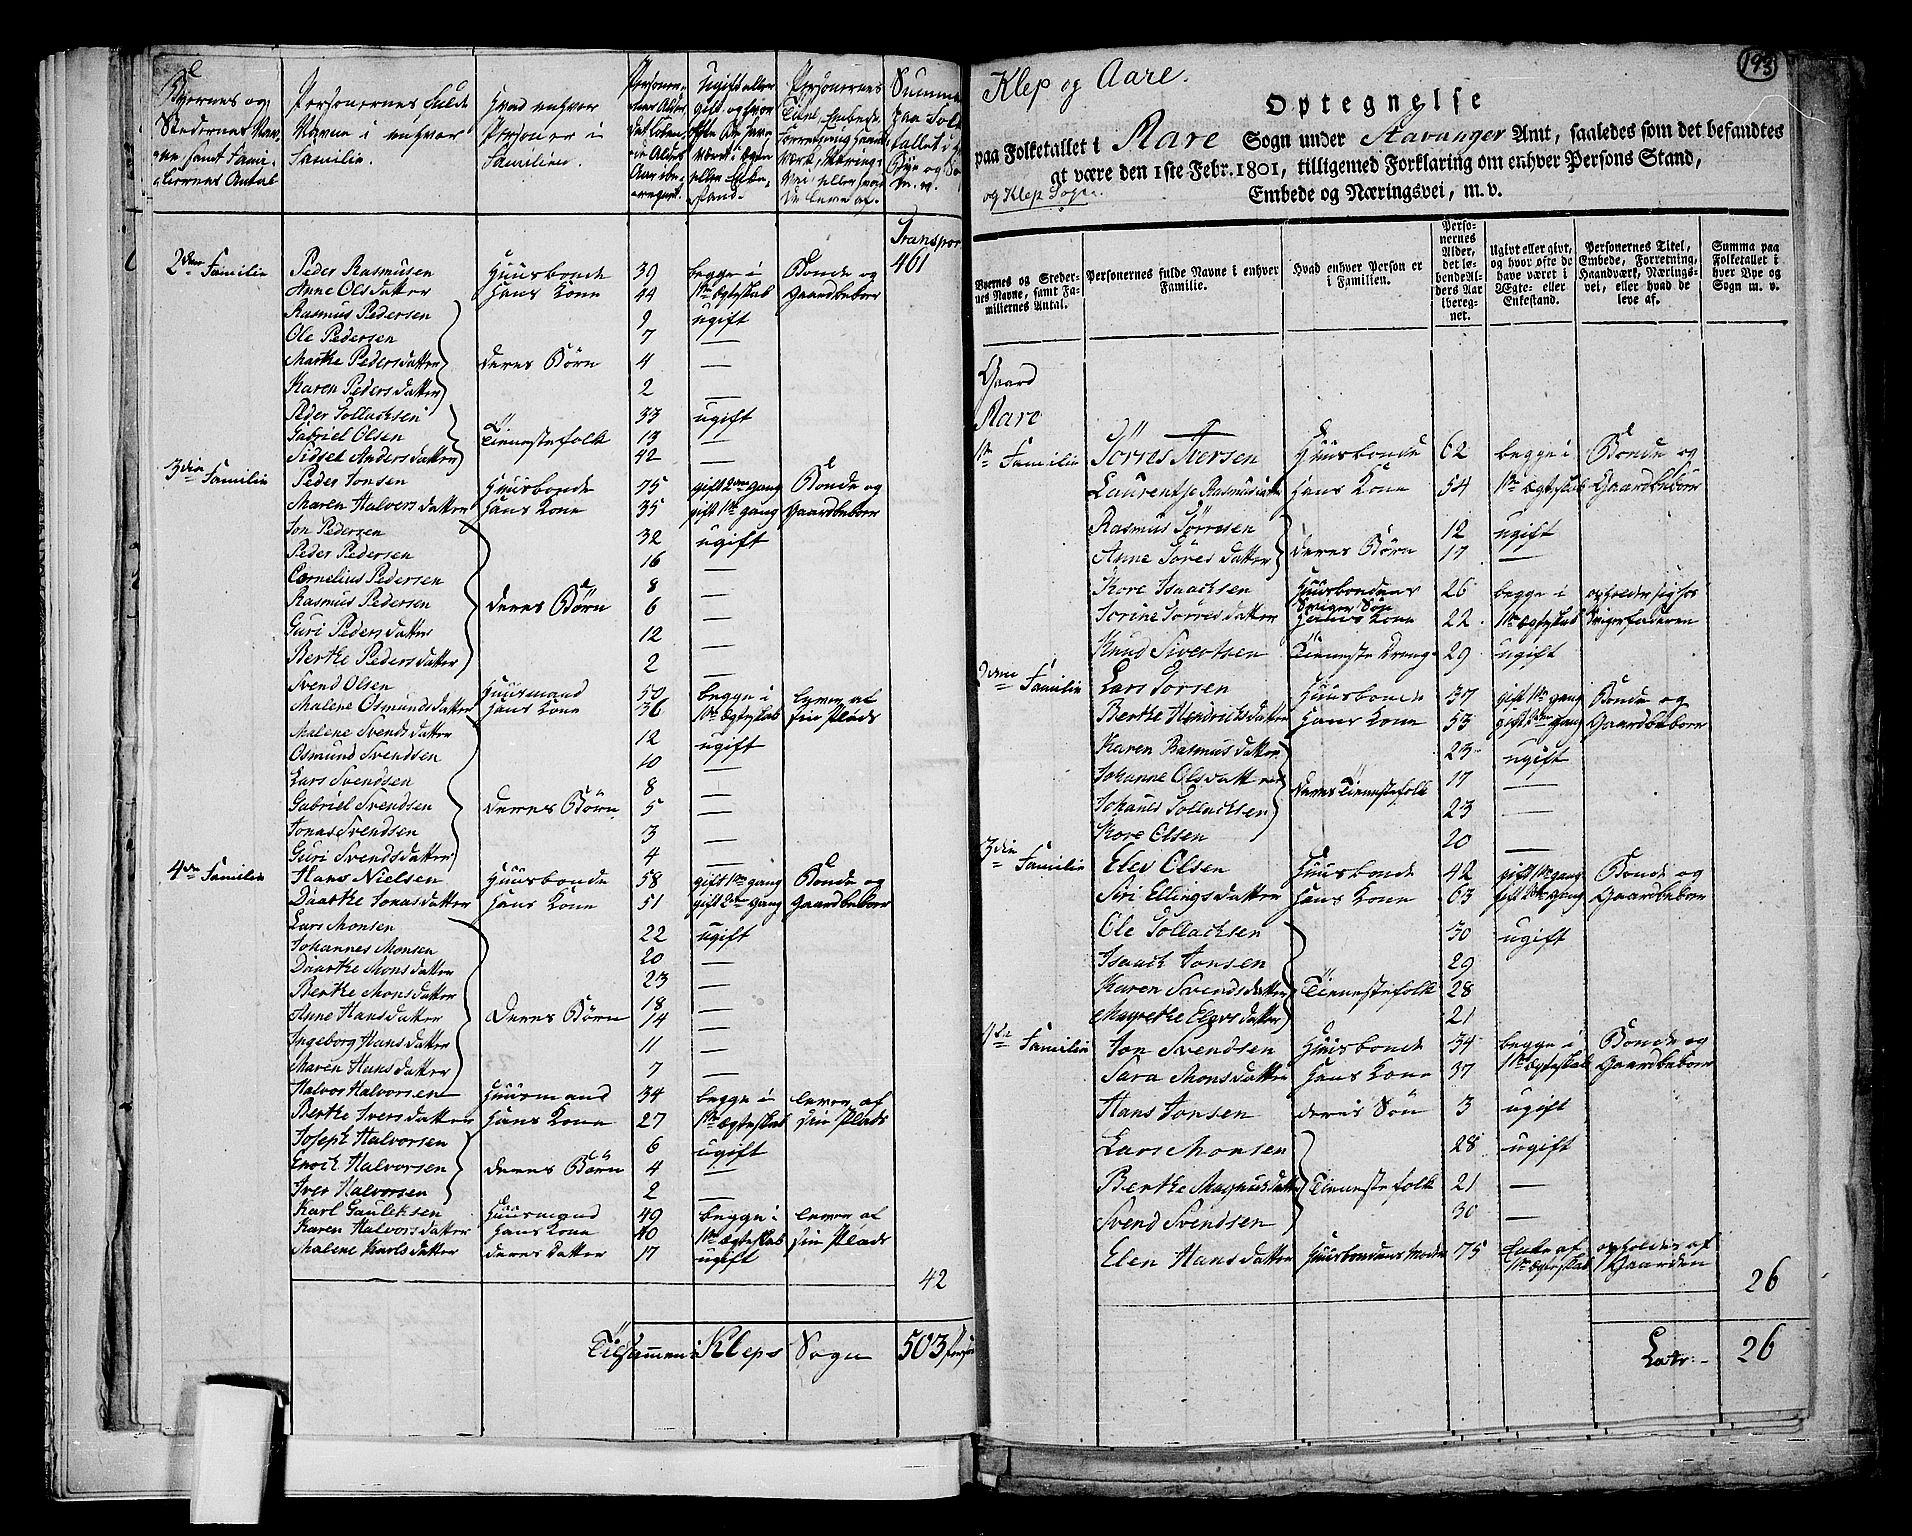 Byernes og Stedernes Navne, samt Familiernes Antal
Personernes fulde Navne i enhver Familie.
Hvad enhver Person er i Familien.
Personernes Alder, det løbende Alders Aar iberegnet.
Ugift eller gift, og hvor ofte De have været i Ægte- eller Enkestand.
Personernes Titel, Embede, Forretning, Haandværk, Næringsvei, eller hvad De leve af.
Summa paa Folketallet i
Transport
461
2den Familie Peder Rasmusen Huusbonde 39 begge i Bonde og
Anne Olsdatter Hans Kone 44 1ste ægteskab Gaardbeboer
Rasmus Pedersen 9 ugift
Ole Pedersen 7 —
Marthe Pedersdatter deres Børn 4 —
Karen Pedersdatter 2 —
Peder Tollachsen 33 ugift
Gabriel Olsen Tienestefolk 13 —
Sidsel Andersdatter 42 —
3die Familie Peder Jonsen Huusbonde 75 gift 2den gang Bonde og
Maren Halvorsdatter Hans Kone 35 gift 1ste gang Gaardbeboer
Jon Pedersen 32 ugift
Peder Pedersen 16 —
Cornelius Pedersen 8 —
Rasmus Pedersen deres Børn 6 —
Guri Pedersdatter 12 —
Berthe Pedersdatter 2 —
Svend Olsen Huusmand 50 begge i lever af
Malene Osmundsdatter Hans Kone 36 1ste ægteskab sin Plads
Malene Svendsdatter 12 ugift
Osmund Svendsen 10 —
Lars Svendsen 8 —
Gabriel Svendsen deres Børn 5 —
Jonas Svendsen 3 —
Guri Svendsdatter 4 —
4de Familie Hans Nielsen Huusbonde 58 gift 1ste gang Bonde og
Daarthe Jonasdatter Hans Kone 51 gift 2den gang Gaardbeboer
Lars Monsen 22 ugift
Johannes Monsen 20 —
Daarthe Monsdatter 23 —
Berthe Monsdatter 18 —
Anne Hansdatter Deres Børn 14 —
Ingeborg Hansdatter 11 —
Maren Hansdatter 7 —
Halvor Halvorsen Huusmand 34 begge i lever af
Berthe Iversdatter Hans Kone 27 1ste ægteskab sin Plads
Joseph Halvorsen 6 ugift
Enoch Halvorsen deres Børn 4 —
Iver Halvorsen 2 —
Karl Gauleksen Huusmand 49 begge i lever af
Karen Halvorsdatter Hans Kone 40 1ste ægteskab sin Plads
Malene Karlsdatter deres datter 17 ugift
42
Tilsammen i Kleps Sogn 503
193
Klep og Aare.
Optegnelse
paa Folketallet i Aare Sogn under Stavanger Amt, saaledes som det befandtes
at være den 1ste Febr. 1801, tilligemed Forklaring om enhver Persons Stand,
og Klep Sogn.
Embede og Næringsvei, m. v.
Byernes og Stedernes Navne, samt Familiernes Antal.
Personernes fulde Navne i enhver Familie.
Hvad enhver Person er i Familien.
Personernes Alder, det løbende Alders Aar iberegnet.
Ugivt eller givt, og hvor ofte de have været i Ægte- eller Enkestand.
Personernes Titel, Embede, Forretning, Haandværk, Næringsvei, eller hvad de leve af.
Summa paa Folketallet i hver Bye og Sogn m. v.
Gaard
Aare
1ste Familie Törres Iversen Huusbonde 62 begge i Bonde og
Laurentze Rasmusdatter Hans Kone 54 1ste ægteskab Gaardbeboer
Rasmus Törresen 12 ugift
Anne Töresdatter deres Børn 17 —
Kore Isaachsen Huusbondens Sviger Søn 26 begge i opholder sig hos
Jorine Torresdatter Hans Kone 22 1ste ægteskab Svigerfaderen
Knud Sivertsen Tieneste Dreng 29 ugift
2den Familie Lars Torsen Huusbonde 37 gift 1ste gang Bonde og
Berthe Hendrichsdatter Hans Kone 53 gift 2den gang Gaardbeboer
Karen Rasmusdatter 23 ugift
Johanne Olsdatter deres Tienestefolk 17 —
Johanes Tollachsen 23 —
Kore Olsen 20 —
3die Familie Elev Olsen Huusbonde 42 gift 1ste gang Bonde og
Siri Ellingsdatter Hans Kone 63 gift 2den gang Gaardbeboer
Ole Tollachsen 30 ugift
Isaach Jonsen 29
Karen Svendsdatter Tienestefolk 28
Magrethe Elevsdatter 21
4de Familie Jon Svendsen Huusbonde 34 begge i Bonde og
Sara Monsdatter Hans Kone 37 1ste ægteskab Gaardbeboer
Hans Jonsen deres Søn 3 ugift
Lars Monsen 28 ugift
Berthe Magnusdatter Tienestefolk 21 —
Svend Svendsen 30 —
Elen Hansdatter Huusbondens Moder 75 Enke af 1ste ægteskab opholdes af Gaarden
26
Latr: 26